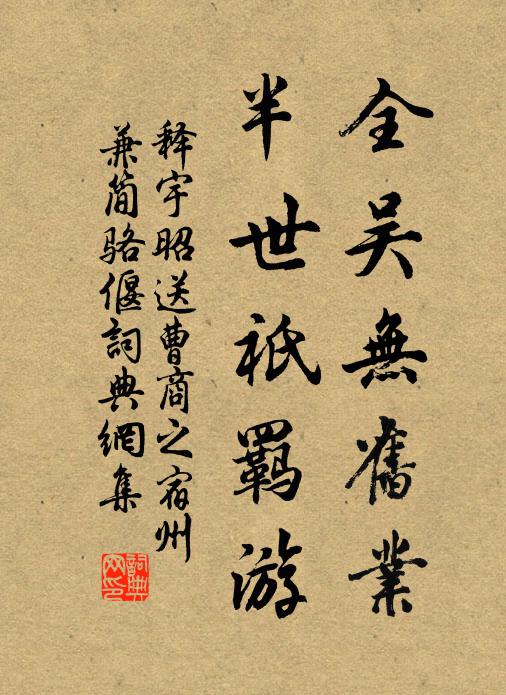 全吴無舊業
半世祇羈游
释宇昭送曹商之宿州
兼简骆偃詞典網集
詞典网印